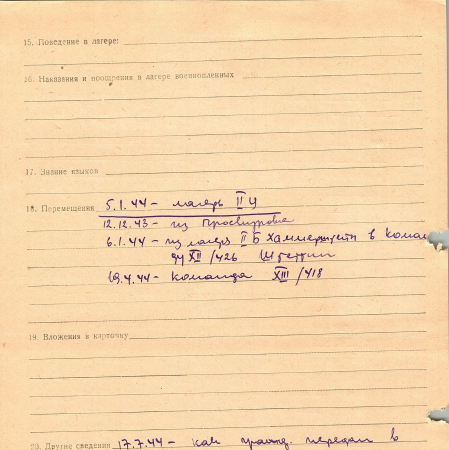 15. Поведение в лагере:
16. Наказания и поощрения в лагере военнопленных
17. Знание языков
18. Перемещения 5.1.44 – лагерь II
12.12.43 – из Проскурова
6.1.44 – из лагеря II Б Хаммерштейн в коман
XII /426 Штеттин
19.4.44 – команда XIII /418
19. Вложения в карточку
20. Другие сведения 17.7.44 – как гражд. передан в